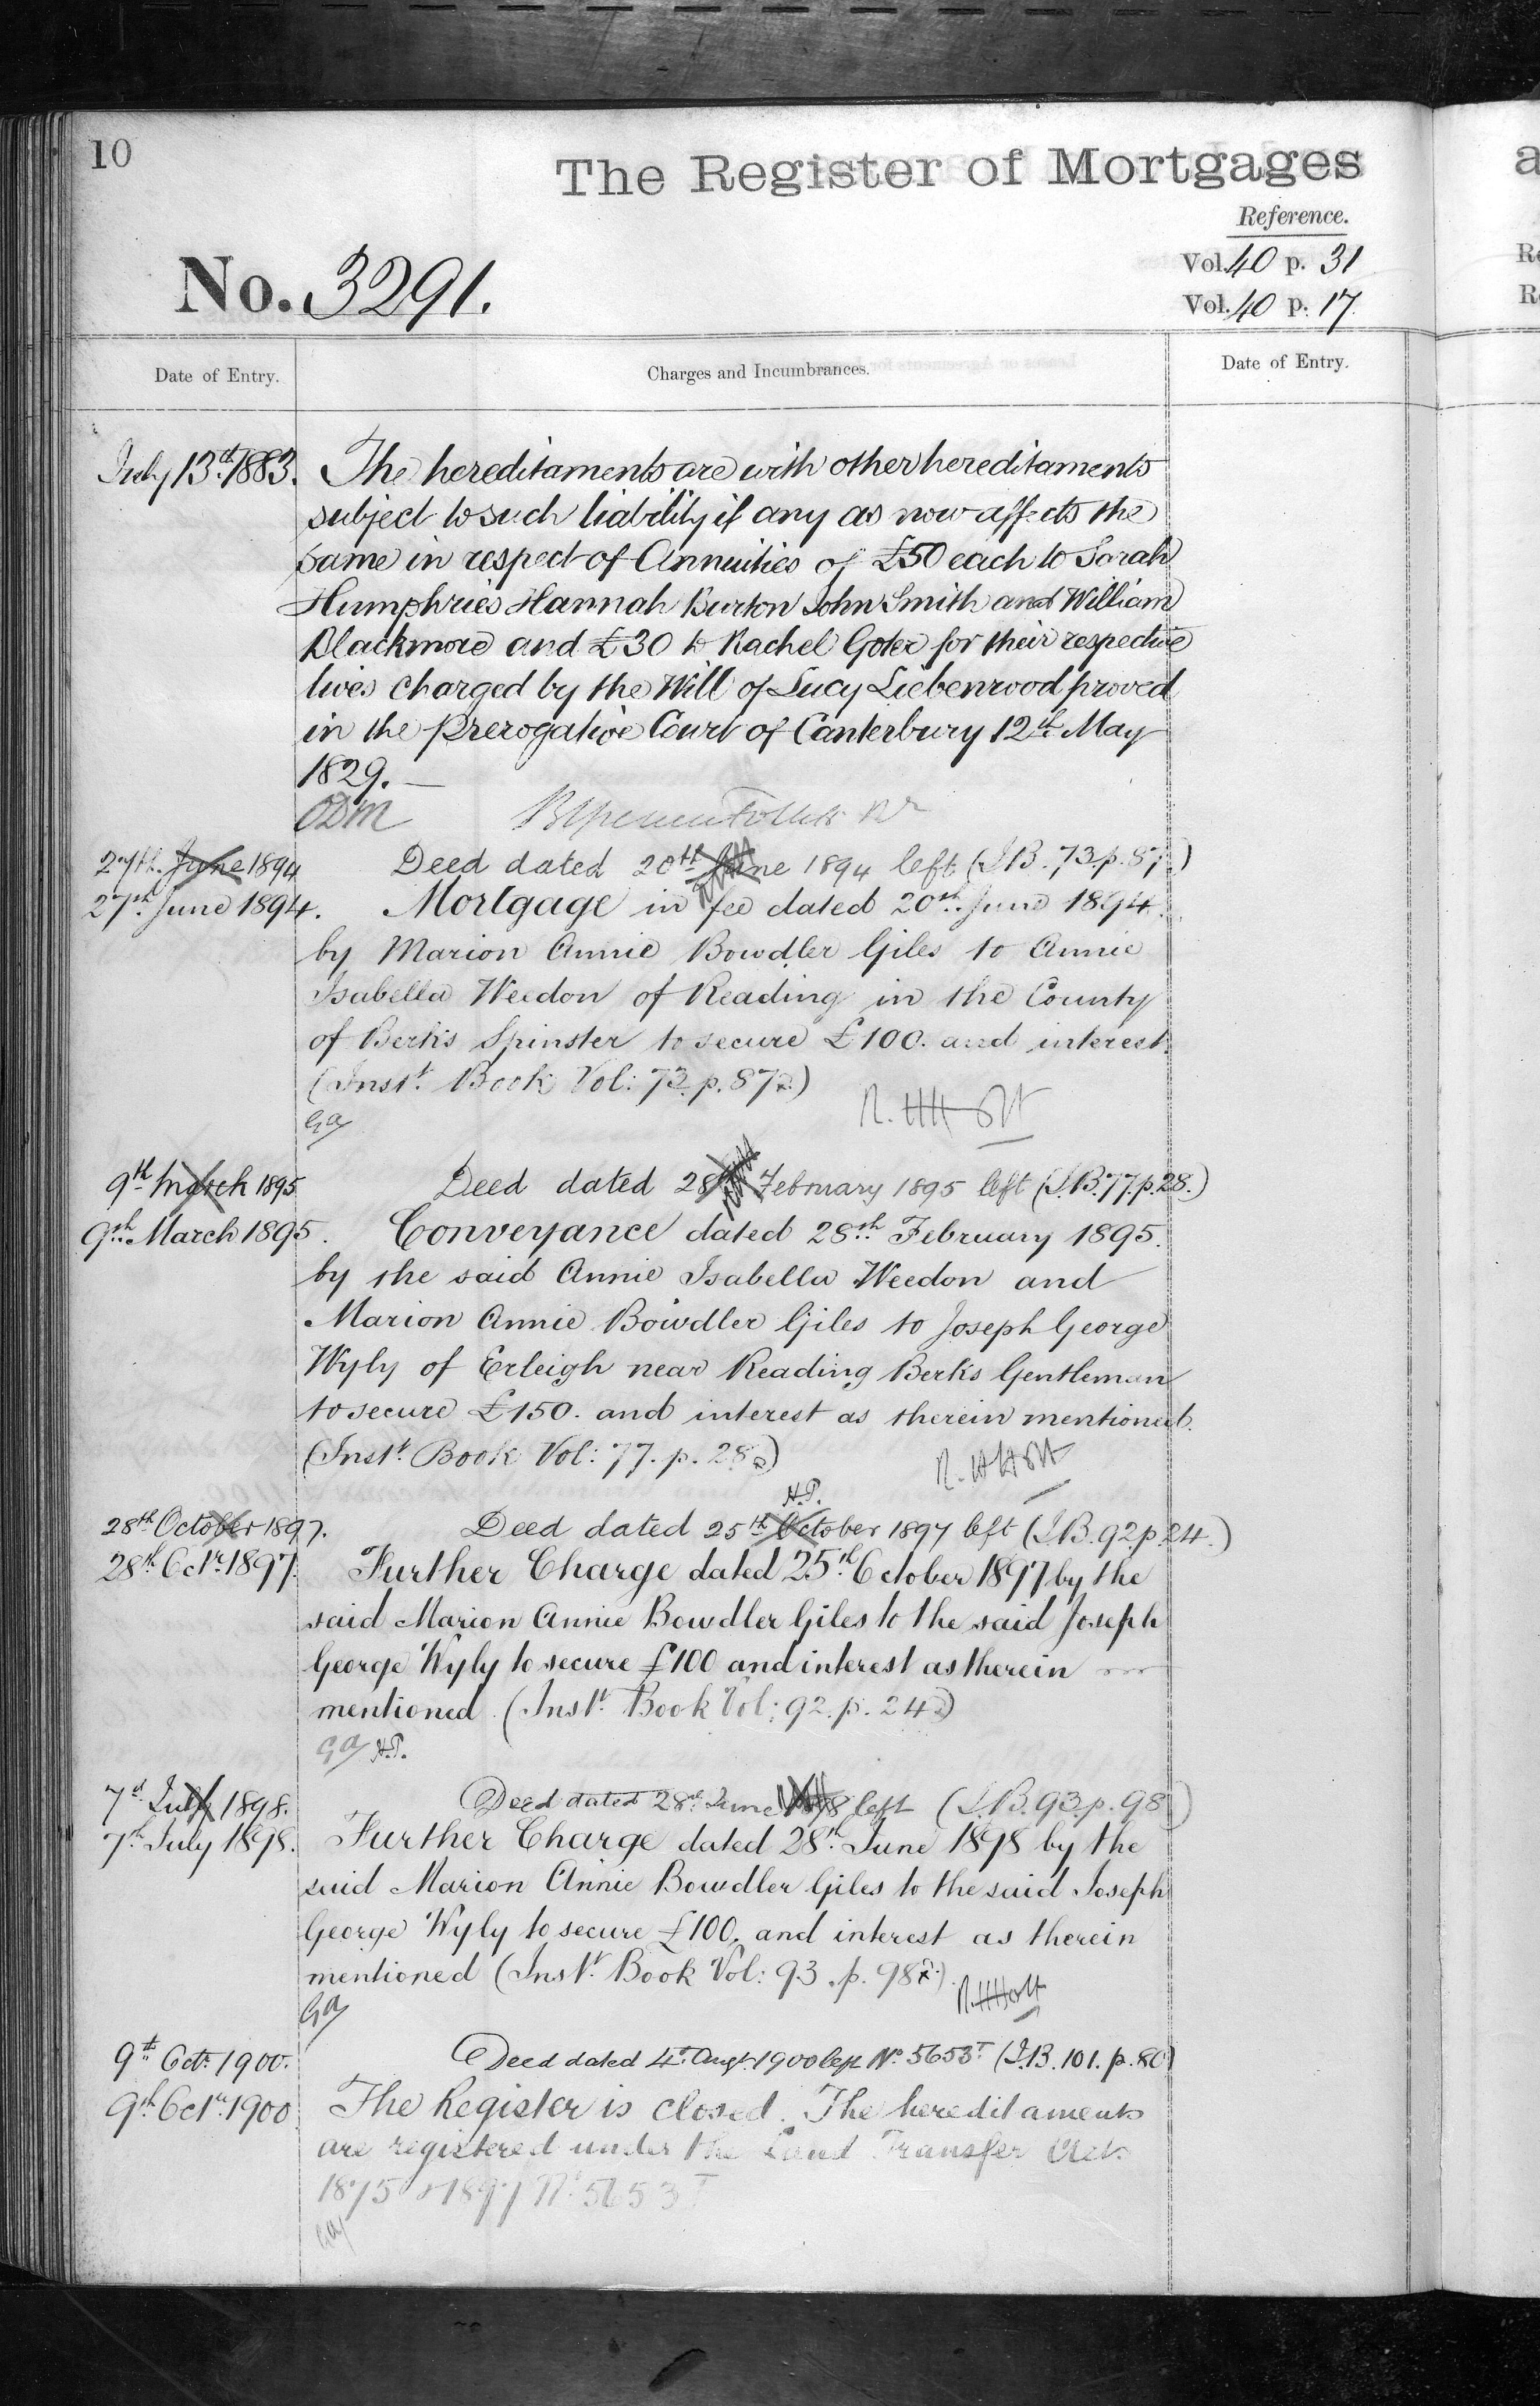 10
The Register of Mortgages
Reference.
Vol. 40 p. 31
Vol. 40 p. 17
No. 3291.
Date of Entry.
Charges and Incumbrances.
Date of Entry.
July 13th 1883. The hereditaments are with other hereditaments
subject to such liability if any as now affects the
same in respect of Annuities of £50 each to Sarah
Humphries Hannah Burton John Smith and William
Blackmore and £30 to Rachel Goter for their respective
lives charged by the Will of Lucy Liebenrood proved
in the Prerogative Court of Canterbury 12th May
1829.
27th June 1894 Deed dated 20th June 1894 left (I.B. 73 p. 87.)
27th June 1894. Mortgage in fee dated 20th June 1894.
by Marion Annie Bowdler Giles to Annie
Isabella Weedon of Reading in the County
of Berks Spinster to secure £100. and interest.
(Inst. Book Vol: 73. p. 87.)
Ga
R. H Holt
9th March 1895 Deed dated 28th February 1895 left (I.B. 77. p. 28.)
9th March 1895. Conveyance dated 28th February 1895.
by the said Annie Isabella Weedon and
Marion Annie Bowdler Giles to Joseph George
Wyly of Erleigh near Reading Berks Gentleman
to secure £150. and interest as therein mentioned.
(Inst. Book Vol: 77. p. 28)
R. H Holt
H.P.
28th October 1897. Deed dated 25th October 1897 left (I.B. 92 p. 24.)
28th Octr. 1897. Further Charge dated 25th October 1897 by the
said Marion Annie Bowdler Giles to the said Joseph
George Wyly to secure £100 and interest as therein
mentioned. (Inst. Book Vol: 92. p. 24)
Ga H.P.
7th July 1898. Deed dated 28th June 1898 left (I.B. 93. p. 98)
7th July 1898. Further Charge dated 28th June 1898 by the
said Marion Annie Bowdler Giles to the said Joseph
George Wyly to secure £100, and interest as therein
mentioned (Inst. Book Vol: 93. p. 98).
Ga
R. H Holt
9th Oct. 1900. Deed dated 4th Augt. 1900 left No. 5653T (I.B. 101. p. 80)
9th Octr. 1900 The Register is closed. The hereditaments
are registered under the Land Transfer Acts
1875 & 1897 No. 5653T
Ga
a
R
R